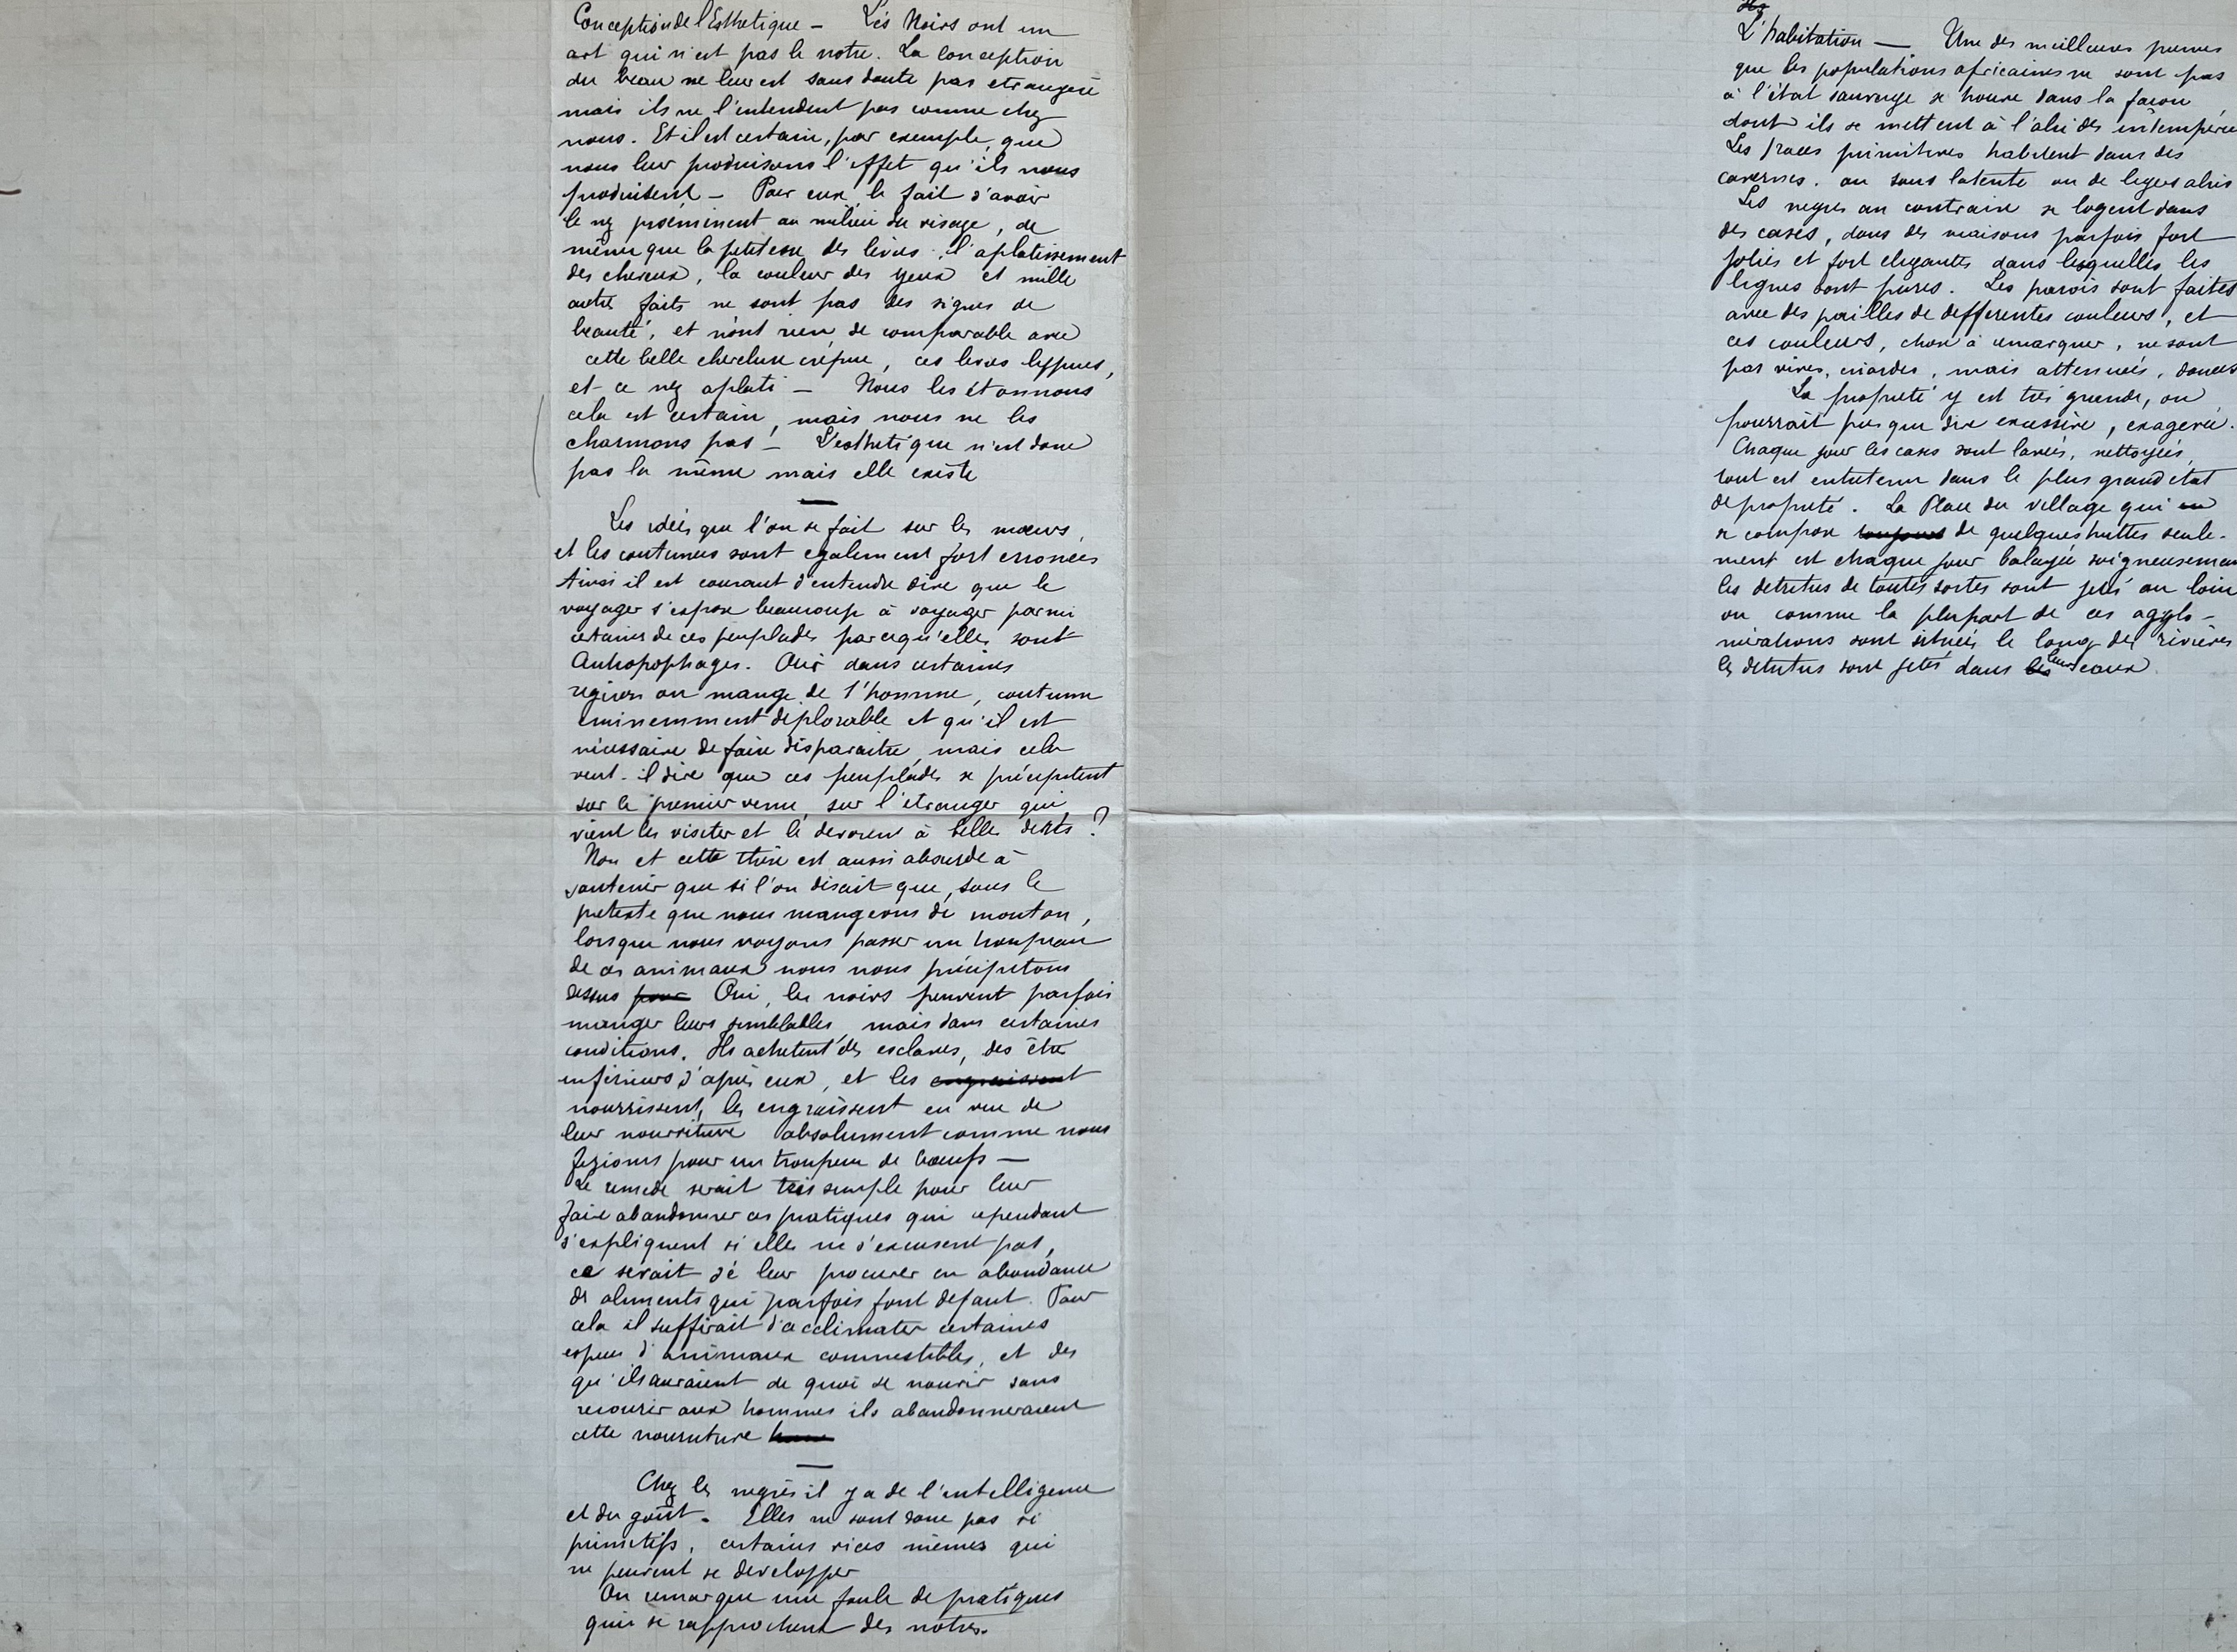 Conception de l'Esthetique — Les Noirs ont un
art qui n'est pas le notre. La conception
du beau ne leur est sans doute pas etrangere
mais ils ne l'entendent pas comme chez
nous. Et il est certain, par exemple, que
nous leur produisons l'effet qu'ils nous
produisent — Pour eux, le fait d'avoir
le nez proéminent au milieu du visage, de
même que la petitesse des lèvres, l'aplatissement
des cheveux, la couleur des yeux et mille
autres faits ne sont pas des signes de
beauté, et n'ont rien de comparable avec
cette belle chevelure crépue, ces levres lippues,
et ce nez aplati — Nous les étonnons
cela est certain, mais nous ne les
charmons pas — L'esthetique n'est donc
pas la même mais elle existe
Les idées que l'on se fait sur les mœurs,
et les coutumes sont egalement fort erronées
Ainsi il est courant d'entendre dire que le
voyager s'expose beaucoup à voyager parmi
certaines de ces peuplades parcequ'elles sont
Antropophages. Oui dans certaines
regions on mange de l'homme, coutume
eminemment deplorable et qu'il est
nécessaire de faire disparaitre, mais cela
veut-il dire que ces peuplades se précipitent
sur le premier venu, sur l'etranger qui
vient les visiter et le devorent à belles dents ?
Non et cette thèse est aussi absurde à
soutenir que si l'on disait que, sous le
pretexte que nous mangeons de mouton,
lorsque nous voyons passer un troupeau
de ces animaux nous nous précipitons
dessus pour Oui, les noirs peuvent parfois
manger leurs semblables, mais dans certaines
conditions. Ils achetent des esclaves, des être
inférieurs d'après eux, et les engraissent
nourrissent, les engraissent en vue de
leur nourriture absolument comme nous
fesions pour un troupeau de bœufs —
Le remede serait très simple pour leur
faire abandonner ces pratiques qui cependant
s'expliquent si elles ne s'excusent pas,
ce serait de leur procurer en abondance
des aliments qui parfois font defaut. Pour
cela il suffirait d'acclimater certaines
especes d'animaux commestibles, et des
qu'ils auraient de quoi se nourir sans
recourir aux hommes ils abandonneraient
cette nourriture
Chez les negres il y a de l'intelligence
et du goût. Elles ne sont donc pas si
primitifs, certains vices mêmes qui
ne peuvent se developper
On remarque une foule de pratiques
qui se rapprochent des notres.
L'habitation — Une des meilleures preuves
que les populations africaines ne sont pas
à l'état sauvage se trouve dans la façon
dont ils se mettent à l'abri des intemperies
Les races primitives habitent dans des
cavernes. ou sous la tente ou de legers abris
Les negres au contraire se logent dans
des cases, dans des maisons parfois fort
jolies et fort elegantes dans lesquelles les
lignes sont pures. Les parois sont faites
avec des pailles de differentes couleurs, et
ces couleurs, chose à remarquer, ne sont
pas vives, criardes, mais attenuées, douces
La propreté y est très grande, on
pourrait presque dire excessive, exagerée.
Chaque jour les cases sont lavées, nettoyées,
tout est entretenu dans le plus grand état
de propreté. La Place du village qui en
se compose toujours de quelques huttes seule-
ment est chaque jour balayée soigneusement
les detritus de toutes sortes sont jetés au loin
ou comme la plupart de ces agglo-
mérations sont situées le long des rivières
les detritus sont jetés dans les leurs eaux.